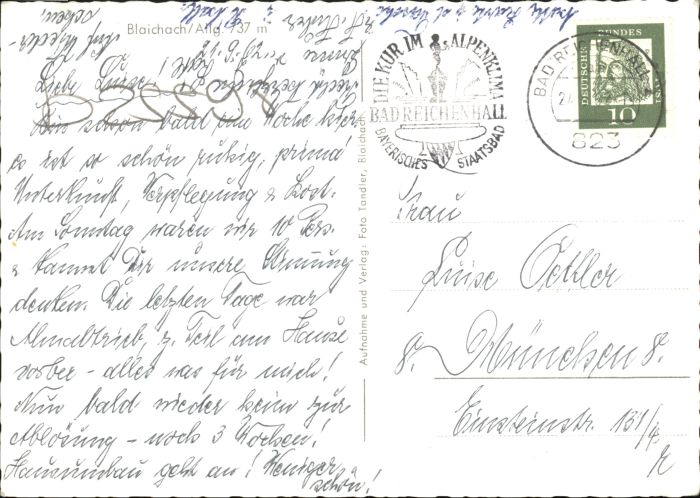 Blaichach/Allg. 737 m
21.9.62
Liebe Luise!
D 20898
Bin schon bald eine Woche hier
es ist so schön ruhig, prima
Unterkunft, Verpflegung & Kost.
Am Sonntag waren wir 10 Pers.
& kannst Dir unsere Stimmung
denken. Die letzten Tage war
Almabtrieb, z. Teil am Hause
vorbei - alles was für mich!
Nun bald wieder heim zur
Ablösung - noch 3 Wochen!
Hausumbau geht an! Weniger
schön!
Aufnahme und Verlag: Foto Tandler, Blaichach
DIE KUR IM ALPENKLIMA
BAD REICHENHALL
BAYERISCHES STAATSBAD
BAD REICHENHALL 2
823
DEUTSCHE BUNDESPOST
10
Frau
Luise Oechler
8. München 8.
Einsteinstr. 131/4
r